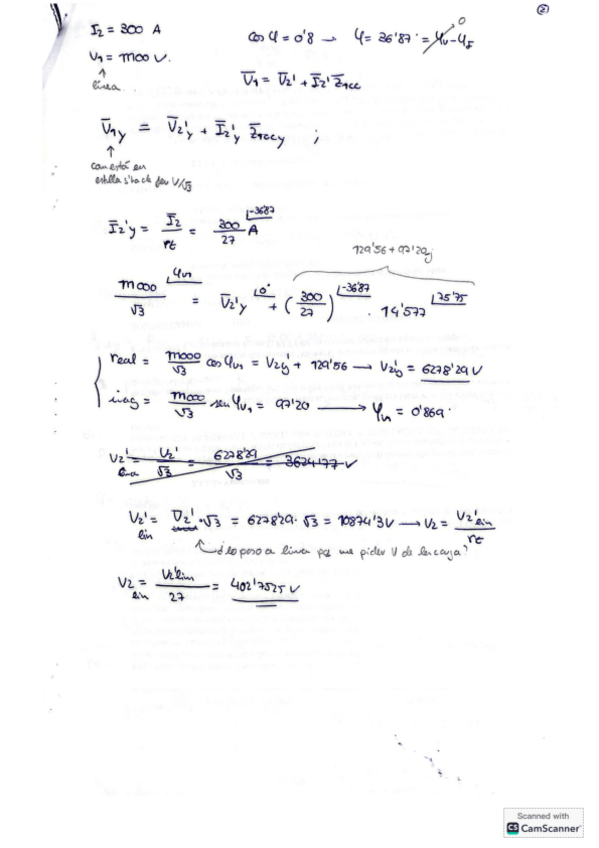 ②
I₂ = 300 A
cos φ = 0'8 → φ = 36'87° = φᵥ - φ_I
0
V₁ = 11000 V.
↑
línea.
V̄₁ = V̄₂' + Ī₂' Z̄₁cc
V̄₁y = V̄₂'y + Ī₂'y Z̄₁ccy ;
↑
com está en
estrella s'ha de fer V/√3
Ī₂'y = Ī₂/rt = 300/27 |-36'87 A
129'56 + 97'20j
11000/√3 |φv₁ = V̄₂'y |0° + (300/27)|-36'87 · 14'577 |75'75
real = 11000/√3 cos φv₁ = V₂'y + 129'56 → V₂'y = 6278'29 V
imag = 11000/√3 sen φv₁ = 97'20 → φv₁ = 0'869°
V₂' línea = V₂'/√3 = 6278'29/√3 = 3624'77 V
V₂' lin = V̄₂' · √3 = 6278'29 · √3 = 10874'3 V → V₂ = V₂'lin/rt
¿lo paso a línea pq me piden V de la carga?
V₂ lin = V₂'lin/27 = 402'7525 V
Scanned with
CS CamScanner